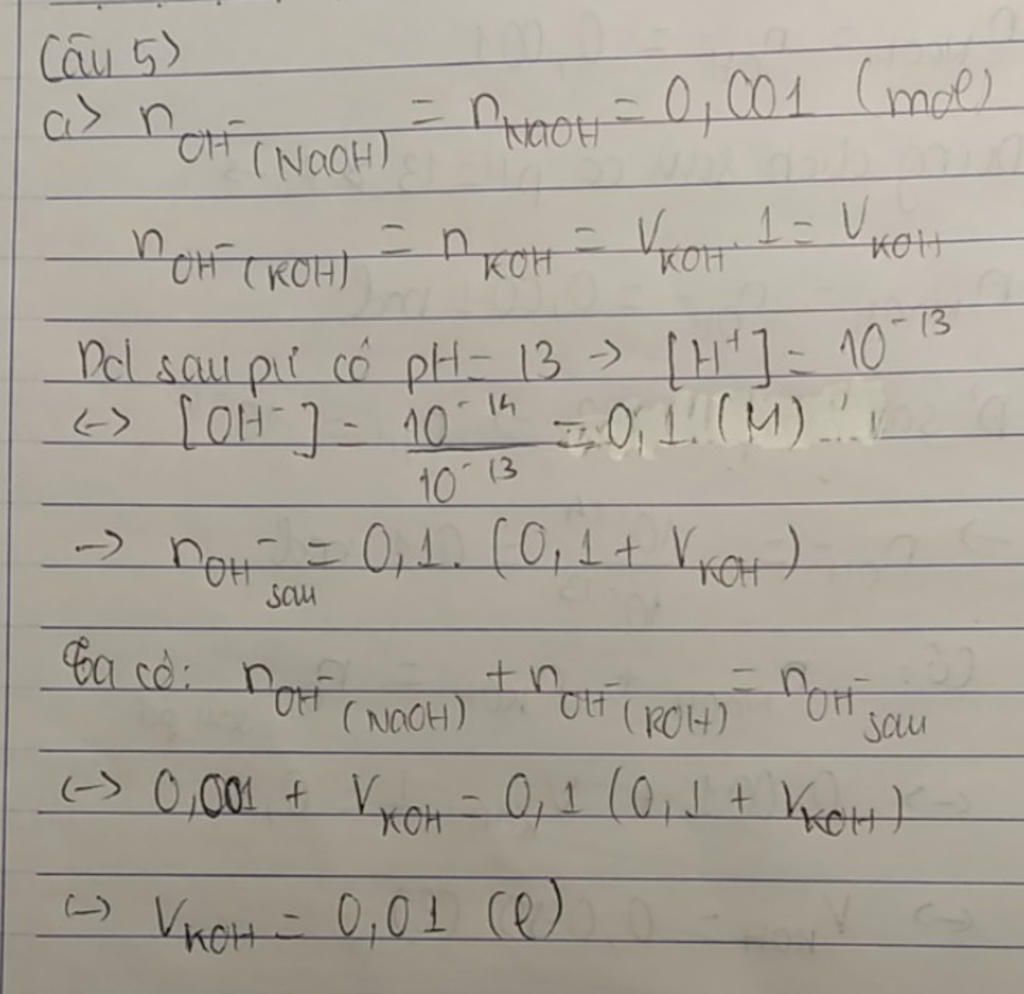 Câu 5>
a> n OH⁻ (NaOH) = n NaOH = 0,001 (mol)
n OH⁻ (KOH) = n KOH = V KOH . 1 = V KOH
Dd sau pứ có pH = 13 → [H⁺] = 10⁻¹³
<-> [OH⁻] = 10⁻¹⁴ / 10⁻¹³ = 0,1 (M)
→ n OH⁻ sau = 0,1. (0,1 + V KOH)
Ta có: n OH⁻ (NaOH) + n OH⁻ (KOH) = n OH⁻ sau
<-> 0,001 + V KOH = 0,1 (0,1 + V KOH)
<-> V KOH = 0,01 (l)